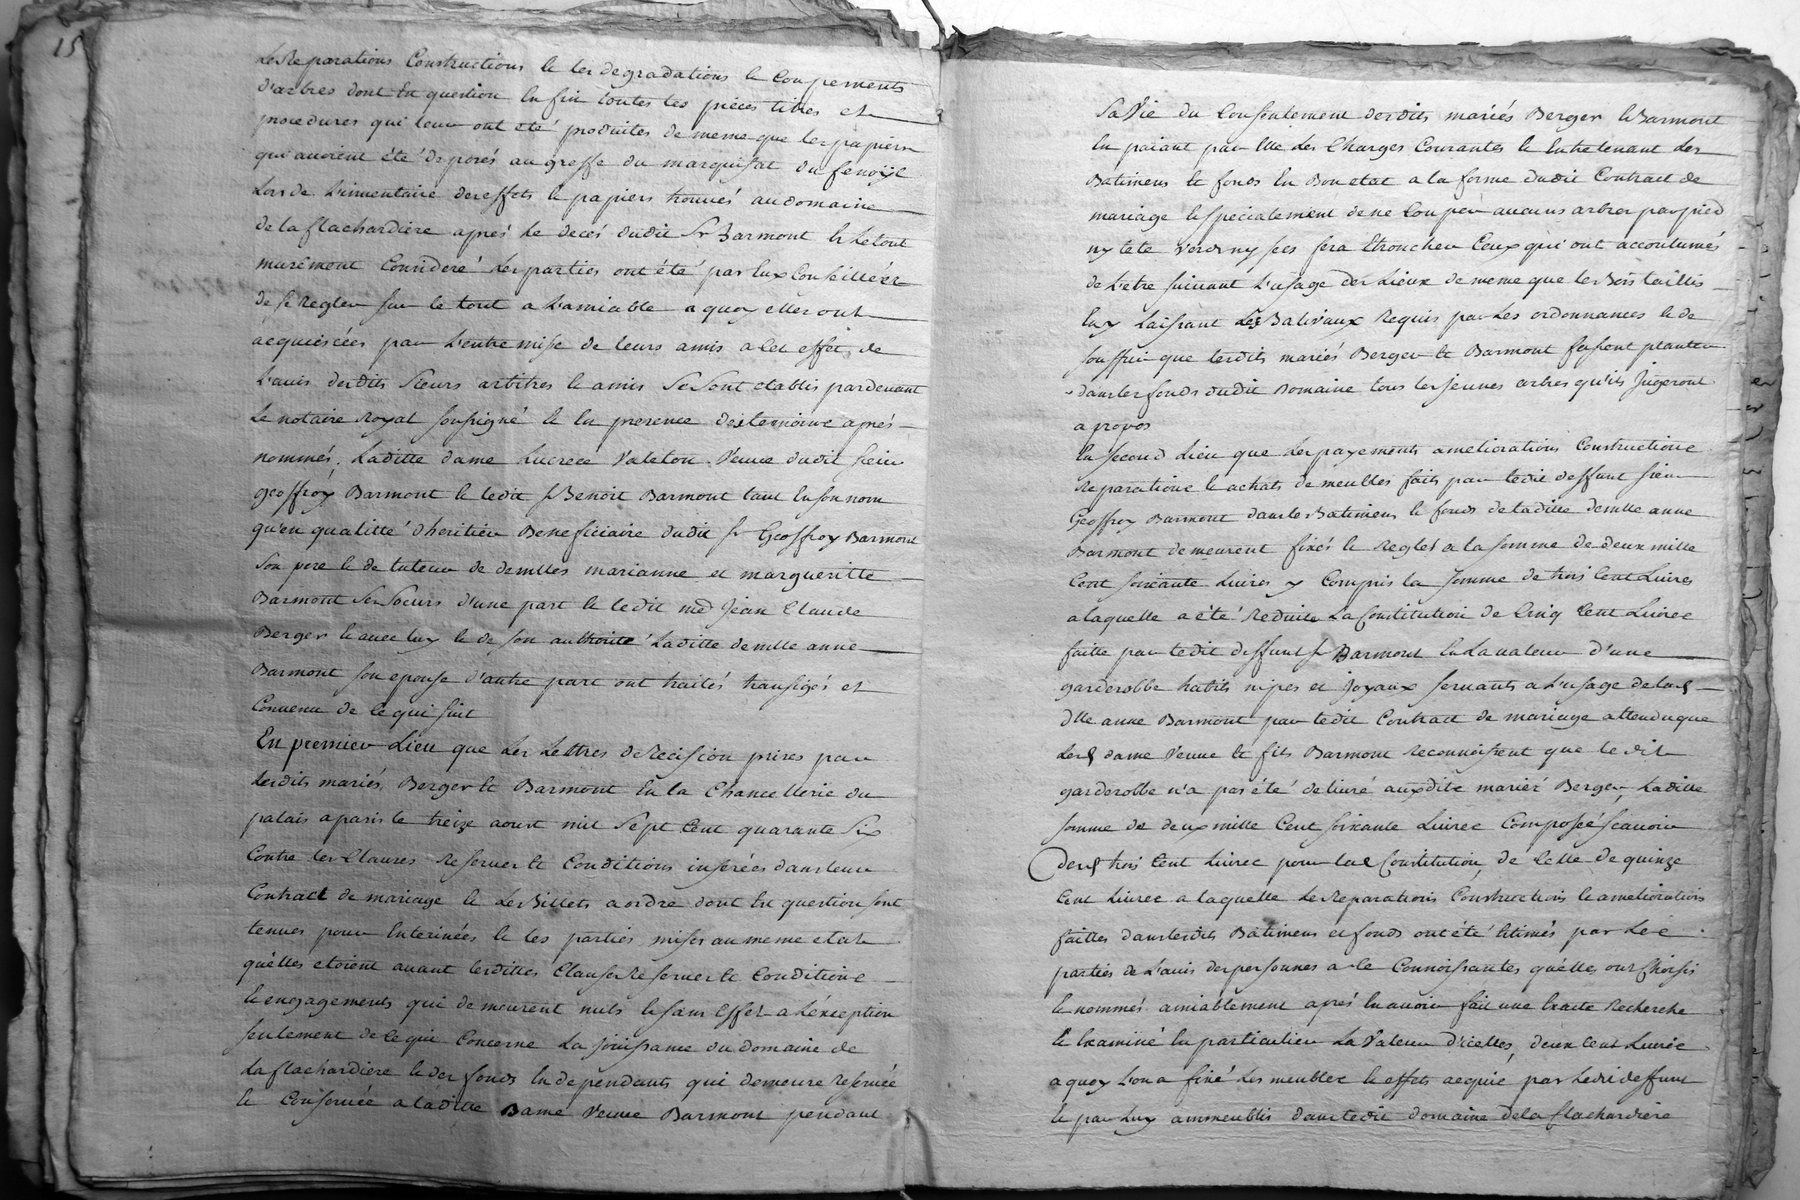 15
Les Reparations Constructions & les degradations & Coupements
d'arbres dont En question Enfin toutes les pieces titres et
procedures qui leur ont eté produites de meme que les papiers
qui avoient été deposés au greffe du marquisat du fenoÿl
Lors de L'inventaire des effets & papiers trouvés au domaine
de la flachardiere aprés Le decés dudit Sr Barmont & Le tout
murement Consideré Les parties ont été par Eux Conseillées
de se Regler sur le tout a L'amiable a quoy elles ont
acquiescées par L'entremise de leurs amis a Cet effet, de
L'avis desdits sieurs arbitres & amis Se sont etablis pardevant
Le notaire Royal soussigné & En presence des temoins aprés
nommés, Laditte dame Lucrece Valeton Veuve dudit sieur
geoffroy Barmont & ledit sr Benoit Barmont tant En son nom
qu'en qualitté d'heritier Beneficiaire dudit sr Geoffroy Barmont
Son pere & de tuteur de demlles marianne et margueritte
Barmont Ses Soeurs d'une part & ledit me Jean Claude
Berger & avec luy & de son authorité Laditte demlle anne
Barmont son epouse d'autre part ont traités transigés et
Convenu de Ce qui suit
En premier Lieu que Les Lettres de Recision prises par
Lesdits mariés Berger & Barmont En la Chancellerie du
palais a paris le treize aoust mil Sept Cent quarante Six
Contre les Clauses Reserves & Conditions inserées dans leur
Contract de mariage & Les Billets a ordre dont En question sont
tenues pour Enterinées & les parties mises au meme etat
quelles etoient avant lesdittes Clauses Reserves & Conditions
& engagements qui demeurent nuls & sans Effet a L'exception
seulement de Ce qui Concerne La joüissance du domaine de
La flachardiere & des fonds En dependants qui demeure Reservée
& Conservée a laditte Dame Veuve Barmont pendant
Sa Vie du Consentement desdits mariés Berger & Barmont
En paiant par Elle Les Charges Courantes & Entretenant Les
Batimens & fonds En Bon etat a la forme dudit Contract de
mariage & specialement de ne Couper aucuns arbres par pied
ny tete Verd ny sec sera Etroncher Ceux qui ont accoutumés
de L'etre suivant L'usage des Lieux de meme que les Bois taillis
En y Laissant Les Balivaux Requis par Les ordonnances & de
souffrir que lesdits mariés Berger & Barmont fassent planter
dans les fonds dudit Domaine tous les jeunes arbres qu'ils Jugeront
a propos
En second Lieu que Les payements ameliorations Constructions
Reparations & achats de meubles faits par ledit deffunt sieur
Geoffroy Barmont dans les Batimens & fonds de laditte demlle anne
Barmont demeurent fixés & Reglés a la somme de deux mille
Cent soixante Livres y Compris la somme de trois Cent Livres
a laquelle a eté Reduite La Constitution de Cinq Cent Livres
faitte par ledit deffunt sr Barmont En La valeur d'une
garderobbe habits nipes et Joyaux servants a L'usage de lad
dlle anne Barmont par ledit Contract de mariage attendu que
Lesd dame Veuve & fils Barmont Reconnoissent que ledit
garderobbe n'a pas été delivré auxdits mariés Berger, Laditte
somme de deux mille Cent soixante Livres Composée scavoir
desd trois Cent Livres pour lad Constitution, de Celle de quinze
Cent Livres a laquelle Les Reparations Constructions & ameliorations
faittes dans lesdits Batimens et fonds ont été Estimés par Les
parties de L'avis des personnes a Ce Connoissantes quelles ont Choisis
& nommés amiablement aprés En avoir fait une Exacte Recherche
& Examiné En particulier La Valeur d'icelles, deux Cent Livres
a quoy L'on a fixé Les meubles & effets acquis par Ledit deffunt
& par Luy ammeublis dans ledit domaine de la flachardiere